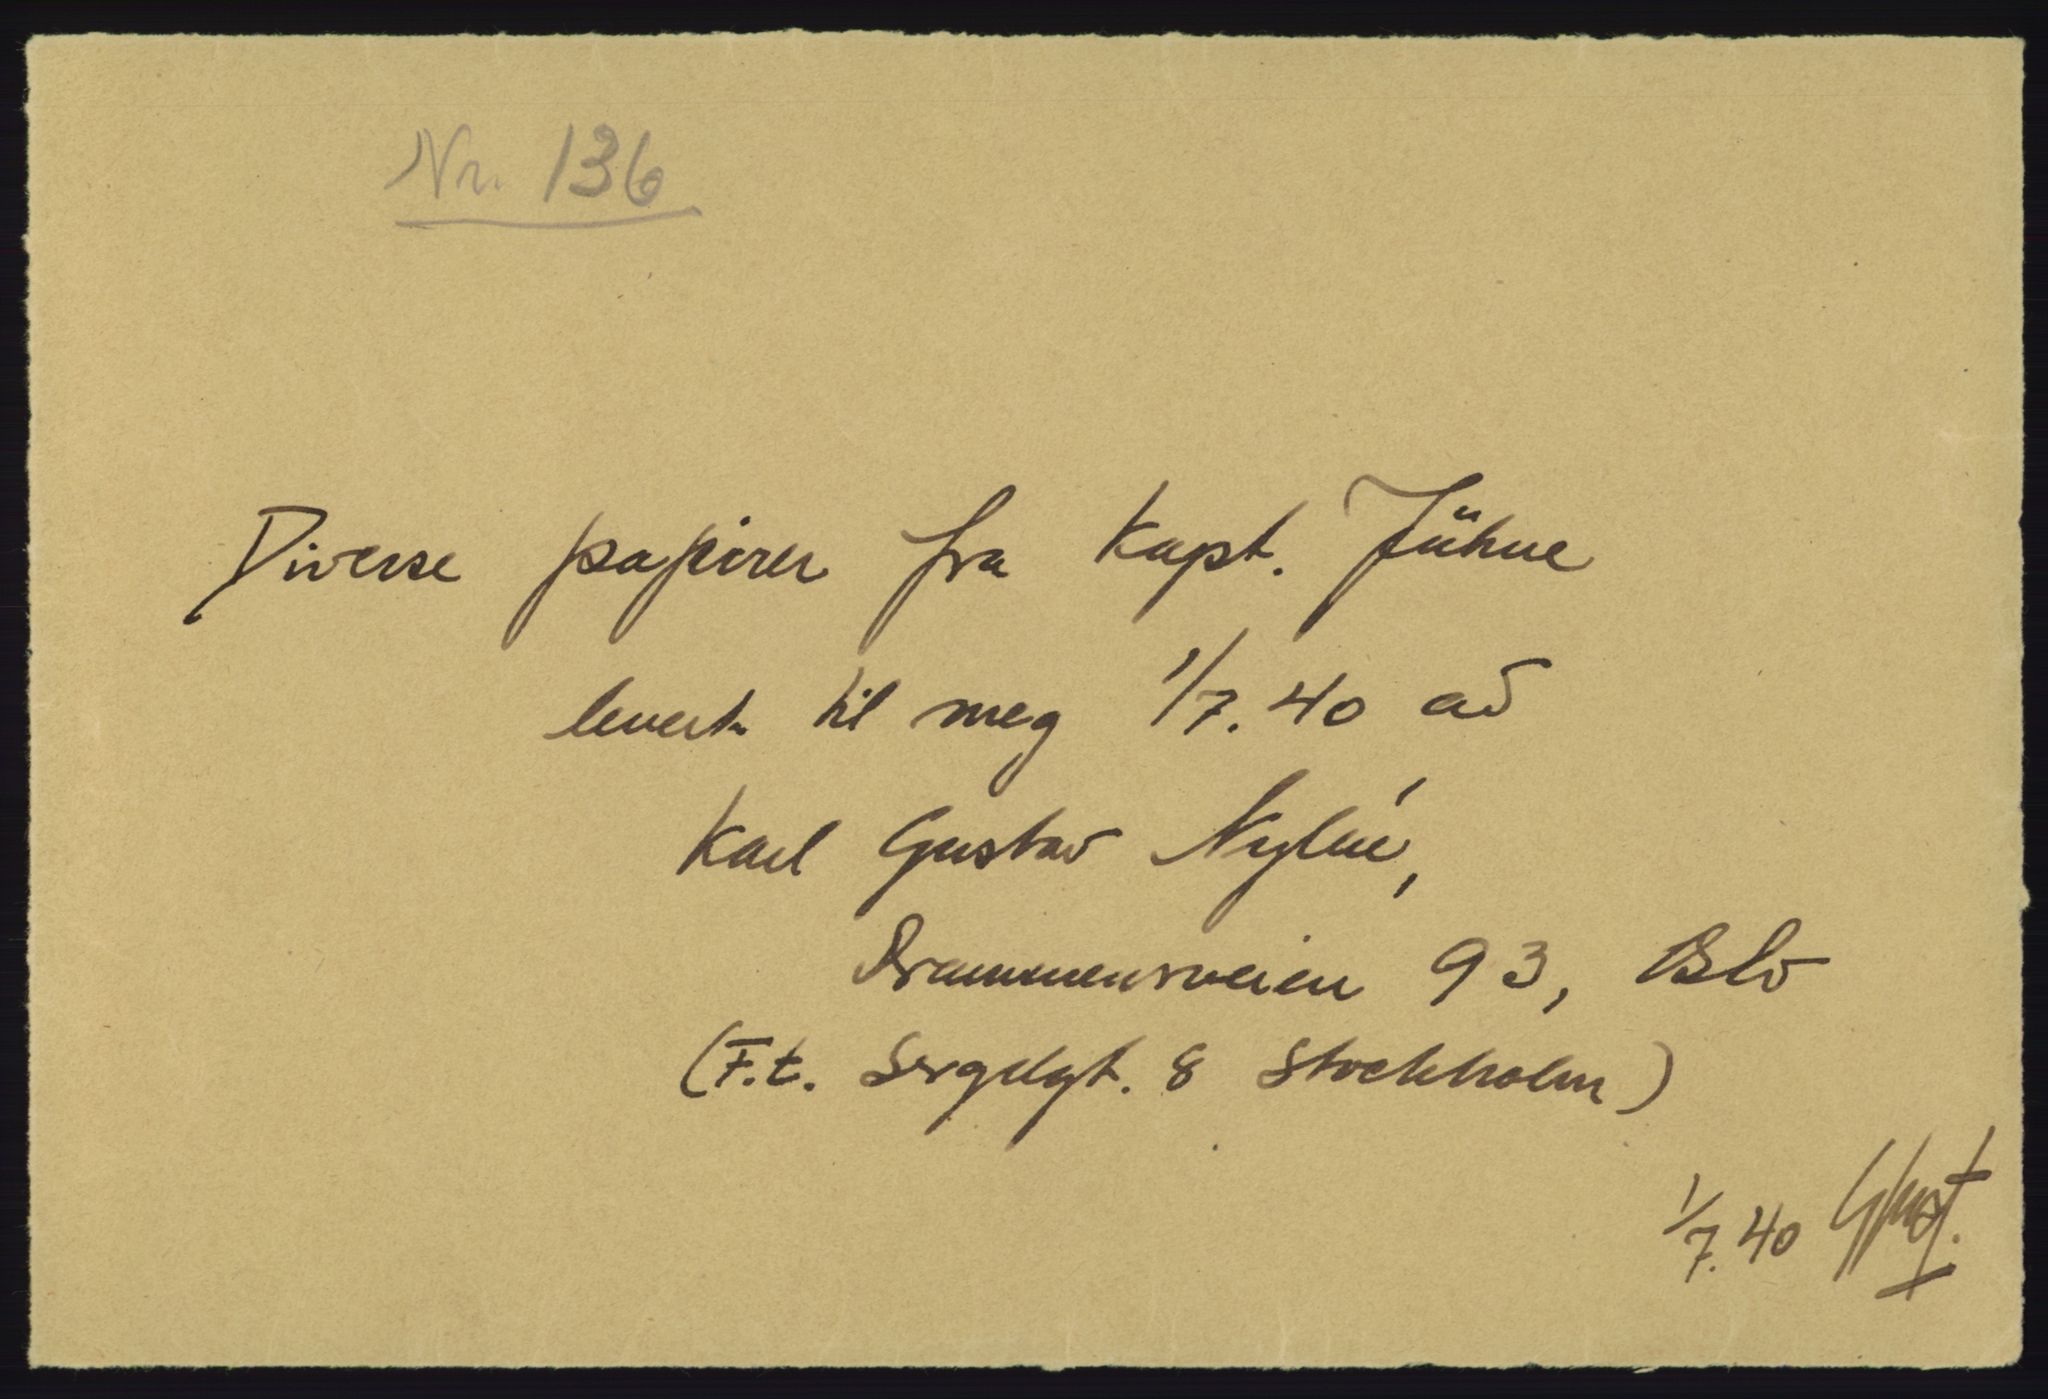 Nr. 136
Diverse papirer fra Kapt. Jühne
levert til meg 1/7.40 av
Karl Gustav Nylén,
Drammensveien 93, Oslo
(F.t. Sergelgt. 8 Stockholm)
1/7.40